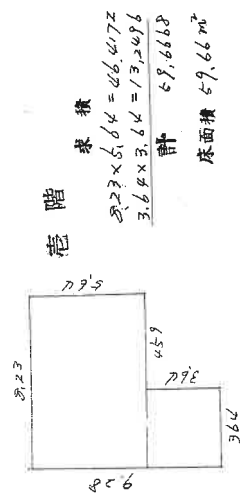 壱階
求積
8.23×5.64=46.4172
3.64×3.64=13.2496
計 59.6668
床面積 59.66㎡
8.23
5.64
9.28
4.59
3.64
3.64